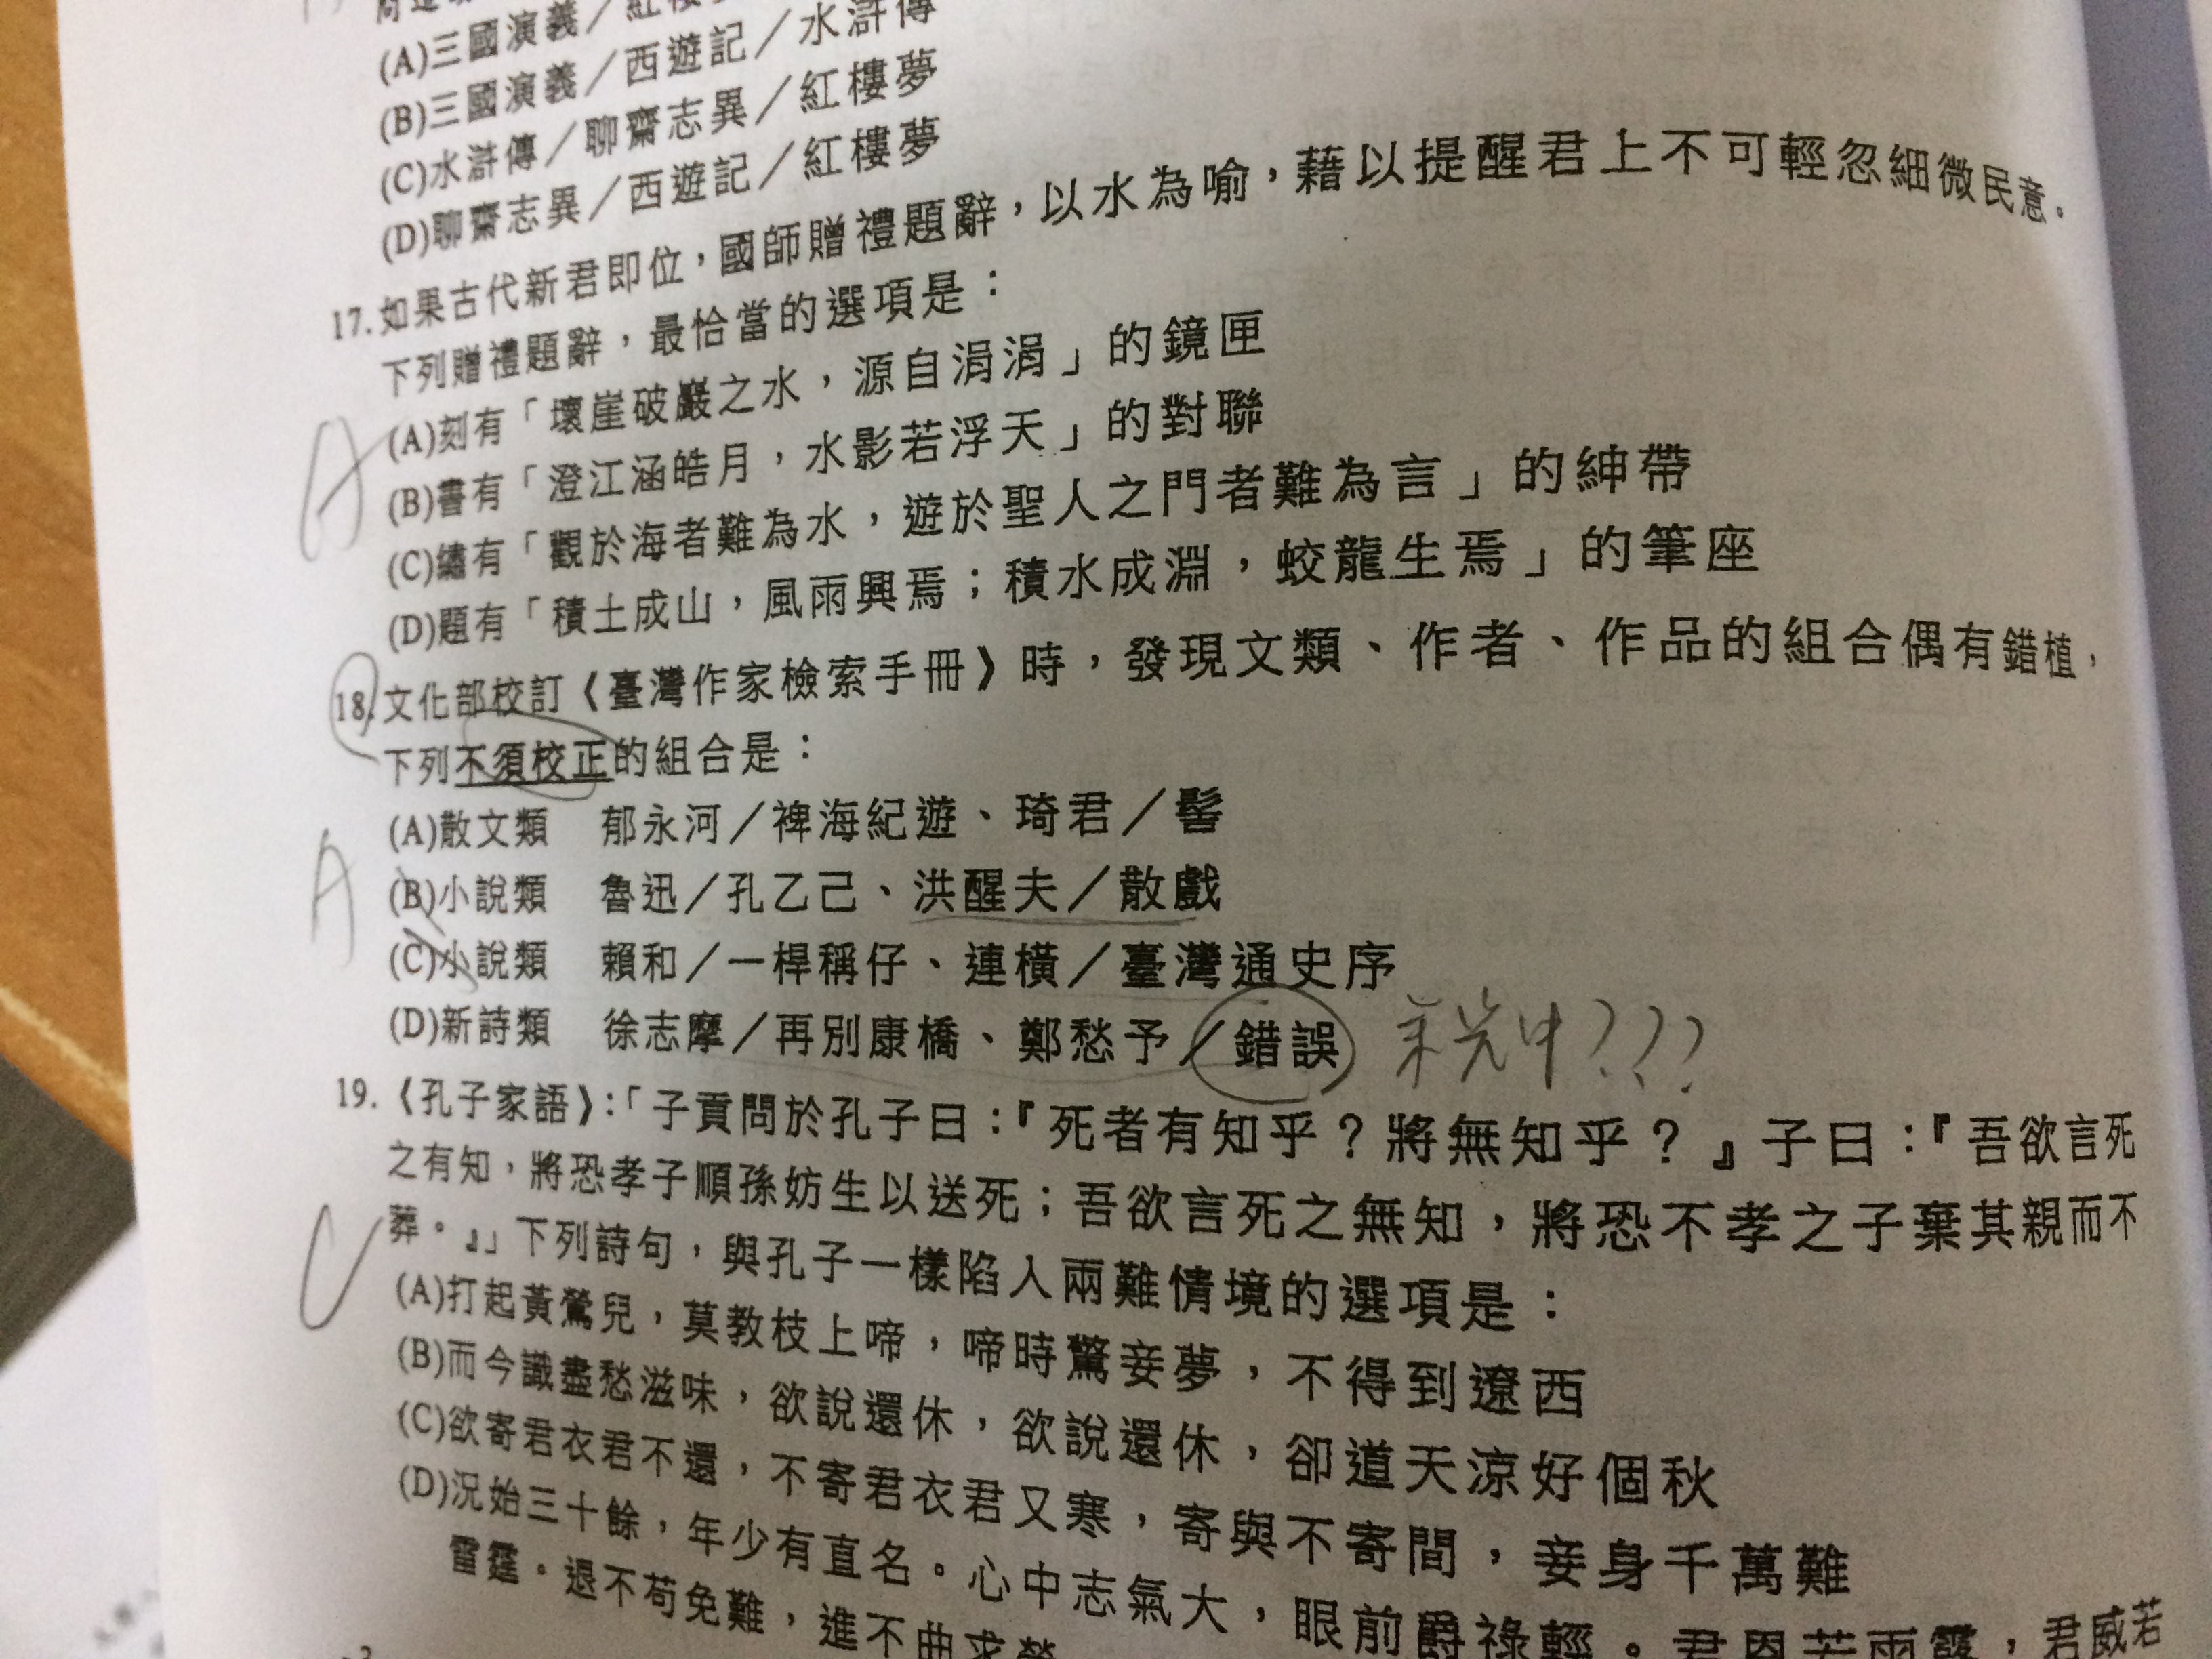 (A)三國演義／紅樓
(B)三國演義／西遊記／水滸傳
(C)水滸傳／聊齋志異／紅樓夢
(D)聊齋志異／西遊記／紅樓夢
17.如果古代新君即位，國師贈禮題辭，以水為喻，藉以提醒君上不可輕忽細微民意。
下列贈禮題辭，最恰當的選項是：
A
(A)刻有「壞崖破巖之水，源自涓涓」的鏡匣
(B)書有「澄江涵皓月，水影若浮天」的對聯
(C)繡有「觀於海者難為水，遊於聖人之門者難為言」的紳帶
(D)題有「積土成山，風雨興焉；積水成淵，蛟龍生焉」的筆座
18.文化部校訂《臺灣作家檢索手冊》時，發現文類、作者、作品的組合偶有錯植，
下列不須校正的組合是：
A
(A)散文類　郁永河／裨海紀遊、琦君／髻
(B)小說類　魯迅／孔乙己、洪醒夫／散戲
(C)小說類　賴和／一桿稱仔、連橫／臺灣通史序
(D)新詩類　徐志摩／再別康橋、鄭愁予／錯誤 余光中???
19.《孔子家語》：「子貢問於孔子曰：『死者有知乎？將無知乎？』子曰：『吾欲言死
之有知，將恐孝子順孫妨生以送死；吾欲言死之無知，將恐不孝之子棄其親而不
葬。』」下列詩句，與孔子一樣陷入兩難情境的選項是：
C
(A)打起黃鶯兒，莫教枝上啼，啼時驚妾夢，不得到遼西
(B)而今識盡愁滋味，欲說還休，欲說還休，卻道天涼好個秋
(C)欲寄君衣君不還，不寄君衣君又寒，寄與不寄間，妾身千萬難
(D)況始三十餘，年少有直名。心中志氣大，眼前爵祿輕。君恩若雨露，君威若
雷霆。退不苟免難，進不曲求榮